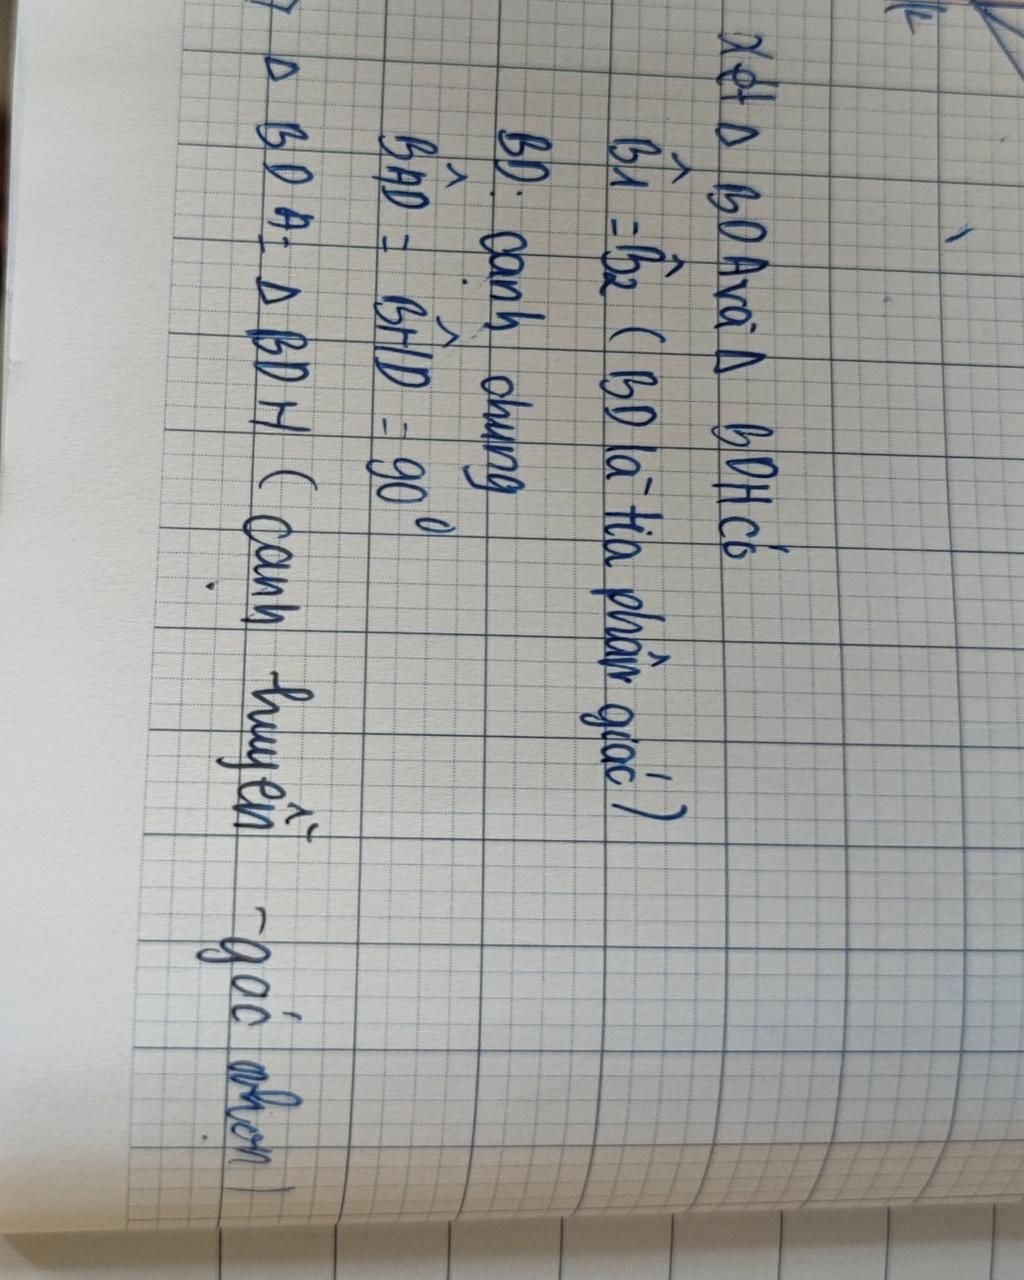 Xét Δ BDA và Δ BDH có
B̂1 = B̂2 ( BD là tia phân giác )
BD: cạnh chung
BÂD = BĤD = 90⁰
Δ BDA = Δ BDH ( cạnh huyền - goć nhọn )